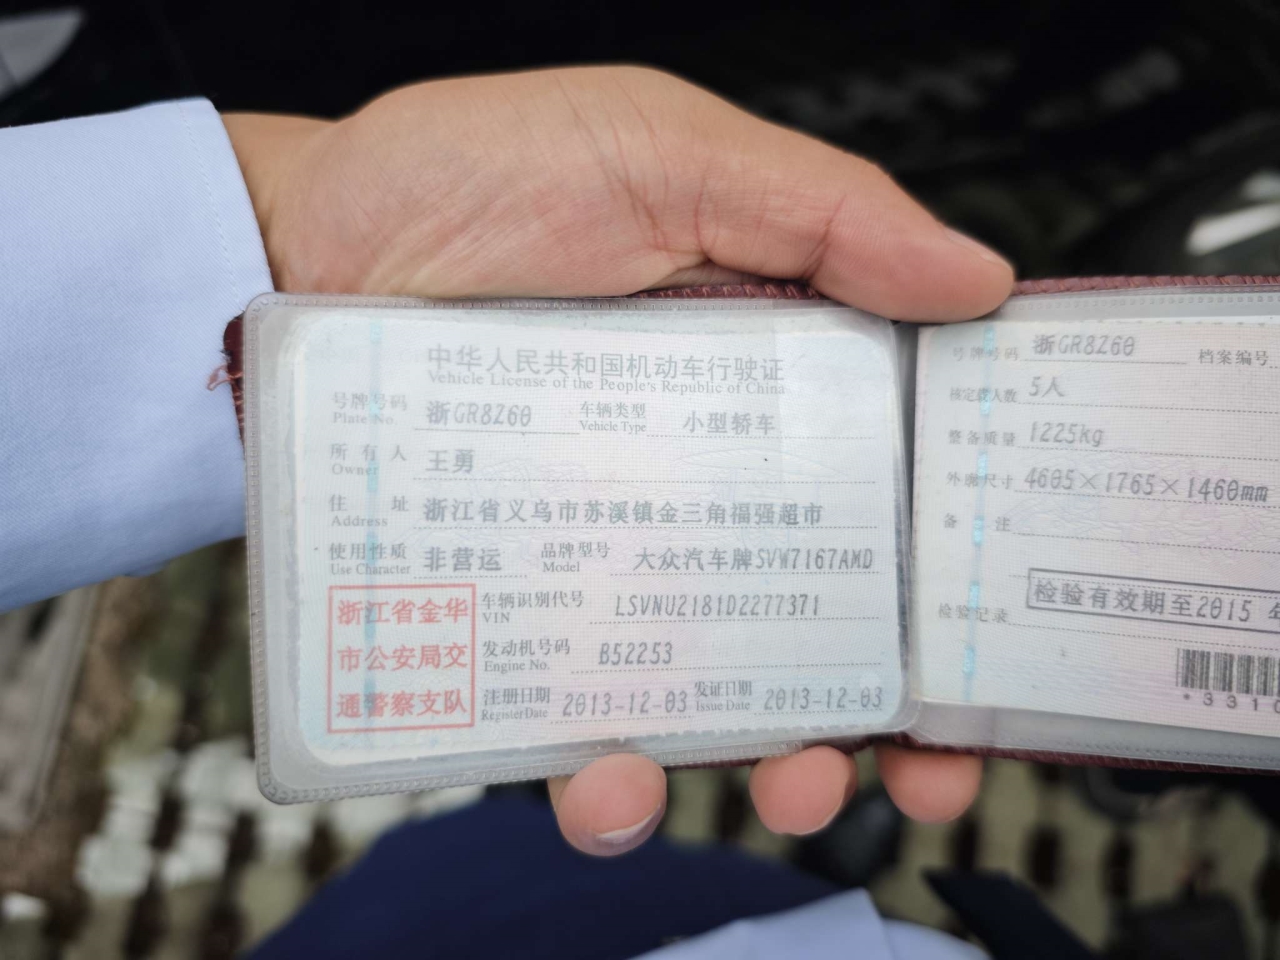 中华人民共和国机动车行驶证
Vehicle License of the People's Republic of China
号牌号码 浙GR8Z60 车辆类型 小型轿车
Plate No. Vehicle Type
所有人 王勇
Owner
住址 浙江省义乌市苏溪镇金三角福强超市
Address
使用性质 非营运 品牌型号 大众汽车牌SVW7167AMD
Use Character Model
浙江省金华
市公安局交
通警察支队
车辆识别代号 LSVNU2181D2277371
VIN
发动机号码 B52253
Engine No.
注册日期 2013-12-03 发证日期 2013-12-03
Register Date Issue Date
号牌号码 浙GR8Z60 档案编号
核定载人数 5人
整备质量 1225kg
外廓尺寸 4605×1765×1460mm
备注
检验记录 检验有效期至2015
*3310